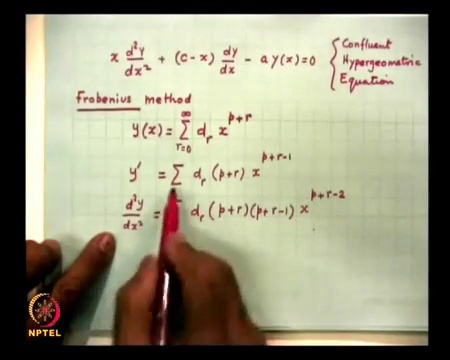 x d²y/dx² + (c-x) dy/dx - a y(x) = 0 { Confluent Hypergeometric Equation {
Frobenius method
y(x) = ∑_{r=0}^{∞} d_r x^{p+r}
y' = ∑ d_r (p+r) x^{p+r-1}
d²y/dx² = d_r (p+r)(p+r-1) x^{p+r-2}
NPTEL